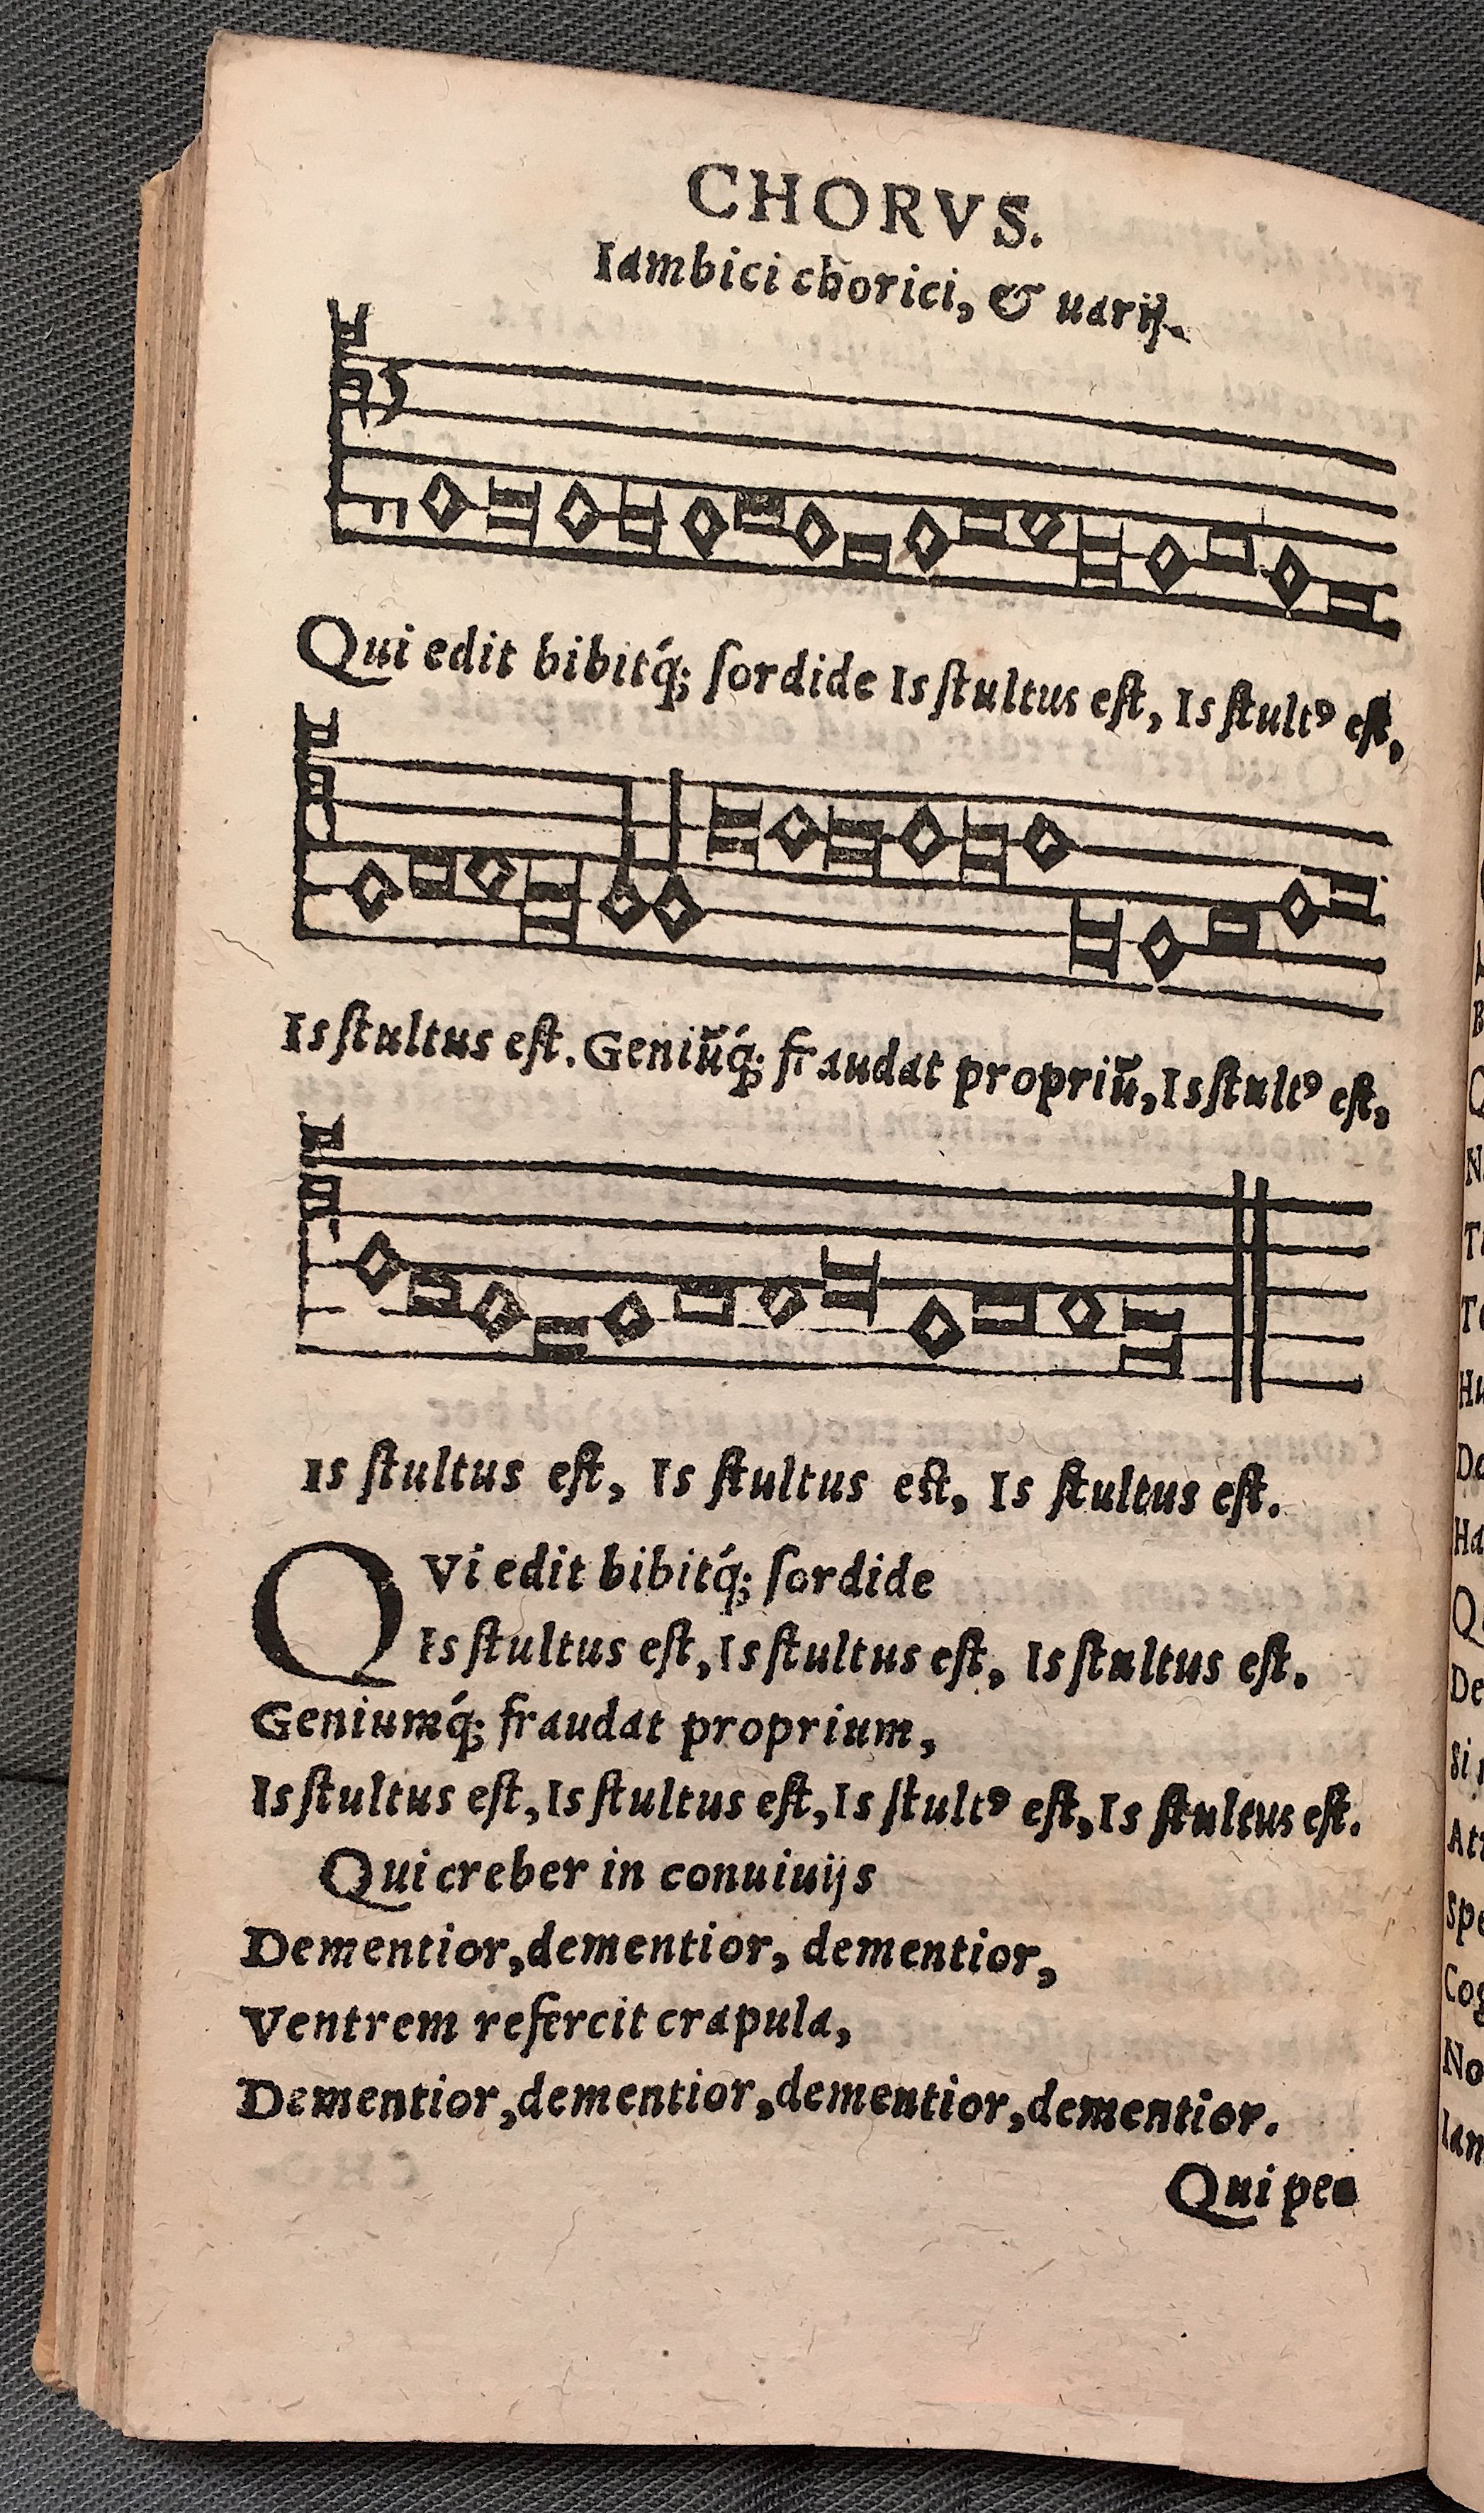 CHORVS.
Iambici chorici, & uarij.
Qui edit bibitq́; ſordide Is ſtultus eſt, Is ſtultꝰ eſt,
Is ſtultus eſt. Geniũq́; fraudat propriũ, Is ſtultꝰ eſt,
Is ſtultus eſt, Is ſtultus eſt, Is ſtultus eſt.
QVi edit bibitq́; ſordide
Is ſtultus eſt, Is ſtultus eſt, Is ſtultus eſt.
Geniumq́; fraudat proprium,
Is ſtultus eſt, Is ſtultus eſt, Is ſtultꝰ eſt, Is ſtultus eſt.
Qui creber in conuiuijs
Dementior, dementior, dementior,
Ventrem refercit crapula,
Dementior, dementior, dementior, dementior.
Qui pe